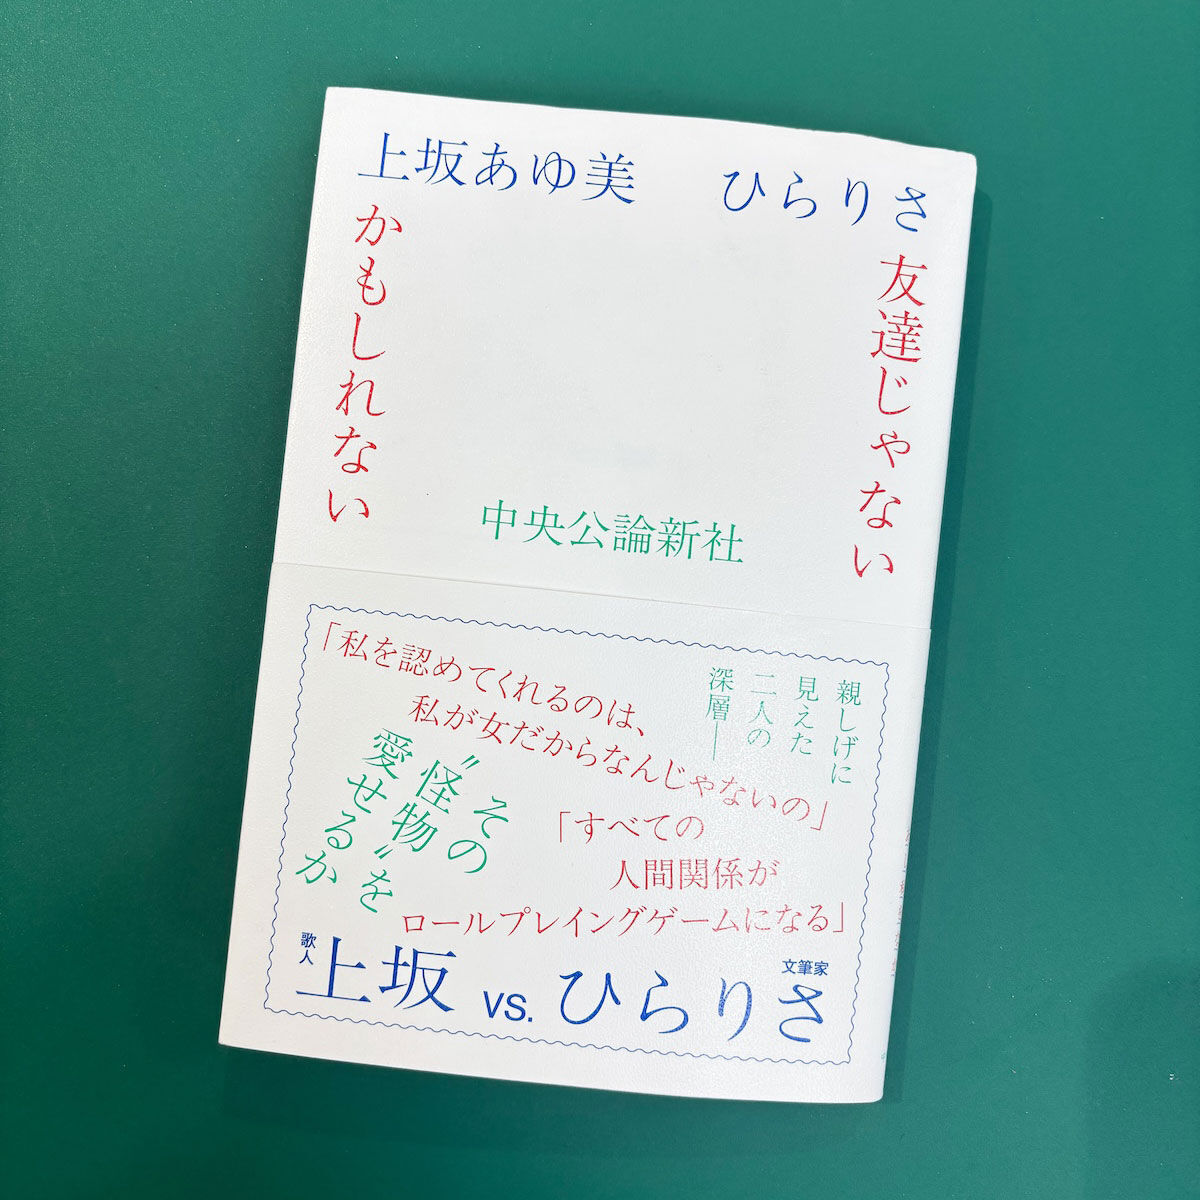 上坂あゆ美 ひらりさ
友達じゃない
かもしれない
中央公論新社
親しげに
見えた
二人の
深層——
「私を認めてくれるのは、
私が女だからなんじゃないの」
「すべての
人間関係が
ロールプレイングゲームになる」
その
〝怪物〟を
愛せるか
歌人
上坂 vs. ひらりさ
文筆家